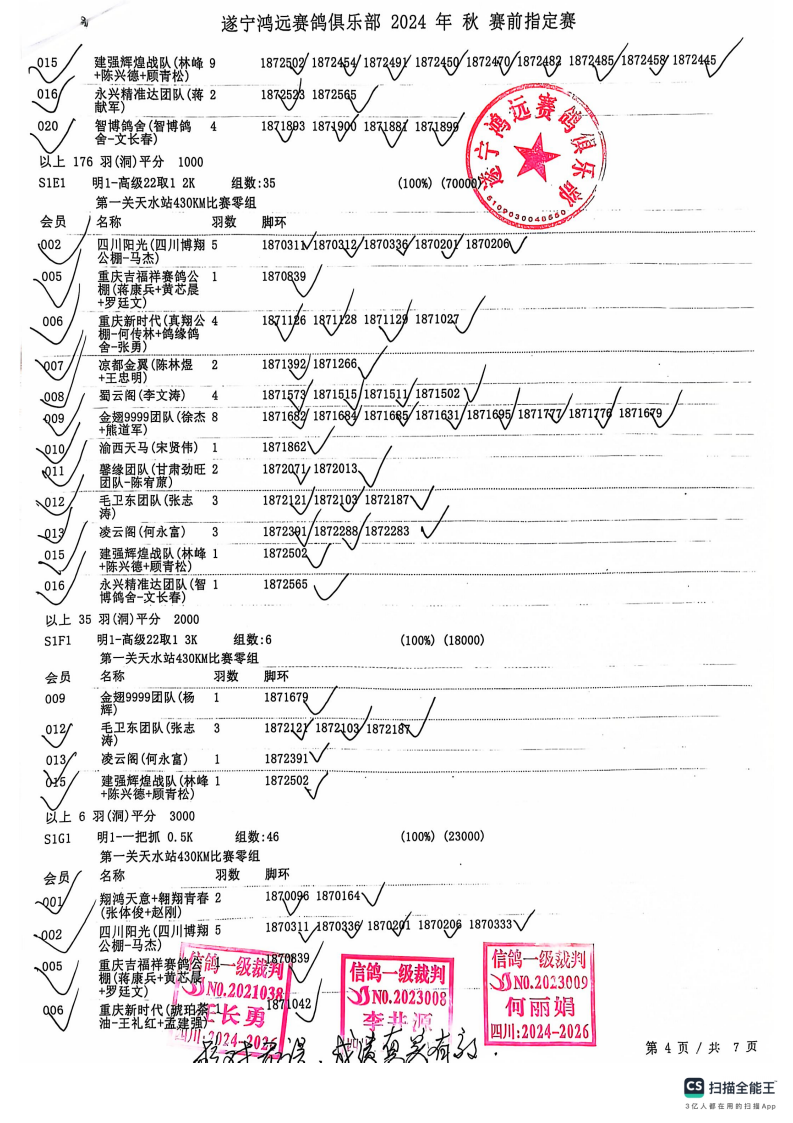 遂宁鸿远赛鸽俱乐部 2024 年 秋 赛前指定赛
015 建强辉煌战队(林峰 9 1872502 1872454 1872491 1872450 1872470 1872482 1872485 1872458 1872445
+陈兴德+顾青松)
016 永兴精准达团队(蒋 2 1872523 1872565
献军)
020 智博鸽舍(智博鸽 4 1871893 1871900 1871881 1871899
舍-文长春)
以上 176 羽(洞)平分 1000
S1E1 明1-高级22取1 2K 组数:35 (100%) (70000)
第一关天水站430KM比赛零组
会员 名称 羽数 脚环
002 四川阳光(四川博翔 5 1870311 1870312 1870336 1870201 1870206
公棚-马杰)
005 重庆吉福祥赛鸽公 1 1870839
棚(蒋康兵+黄芯晨
+罗廷文)
006 重庆新时代(真翔公 4 1871126 1871128 1871129 1871027
棚-何传林+鸽缘鸽
舍-张勇)
007 凉都金翼(陈林煜 2 1871392 1871266
+王忠明)
008 蜀云阁(李文涛) 4 1871573 1871515 1871511 1871502
009 金翅9999团队(徐杰 8 1871682 1871684 1871685 1871631 1871695 1871777 1871776 1871679
+熊道军)
010 渝西天马(宋贤伟) 1 1871862
011 馨缘团队(甘肃劲旺 2 1872071 1872013
团队-陈宥蒝)
012 毛卫东团队(张志 3 1872121 1872103 1872187
涛)
013 凌云阁(何永富) 3 1872391 1872288 1872283
015 建强辉煌战队(林峰 1 1872502
+陈兴德+顾青松)
016 永兴精准达团队(智 1 1872565
博鸽舍-文长春)
以上 35 羽(洞)平分 2000
S1F1 明1-高级22取1 3K 组数:6 (100%) (18000)
第一关天水站430KM比赛零组
会员 名称 羽数 脚环
009 金翅9999团队(杨 1 1871679
辉)
012 毛卫东团队(张志 3 1872121 1872103 1872187
涛)
013 凌云阁(何永富) 1 1872391
015 建强辉煌战队(林峰 1 1872502
+陈兴德+顾青松)
以上 6 羽(洞)平分 3000
S1G1 明1-一把抓 0.5K 组数:46 (100%) (23000)
第一关天水站430KM比赛零组
会员 名称 羽数 脚环
001 翔鸿天意+翱翔青春 2 1870096 1870164
(张体俊+赵刚)
002 四川阳光(四川博翔 5 1870311 1870336 1870201 1870206 1870333
公棚-马杰)
005 重庆吉福祥赛鸽公 1 1870839
棚(蒋康兵+黄芯晨
+罗廷文)
006 重庆新时代(琥珀茶 1 1871042
油-王礼红+孟建强)
遂宁鸿远赛鸽俱乐部
5109030048550
信鸽一级裁判
NO.2021038
王长勇
四川:2024-2026
信鸽一级裁判
NO.2023008
信鸽一级裁判
NO.2023009
何丽娟
四川:2024-2026
核对无误、成绩真实有效.
第 4 页/共 7 页
CS 扫描全能王
3亿人都在用的扫描App